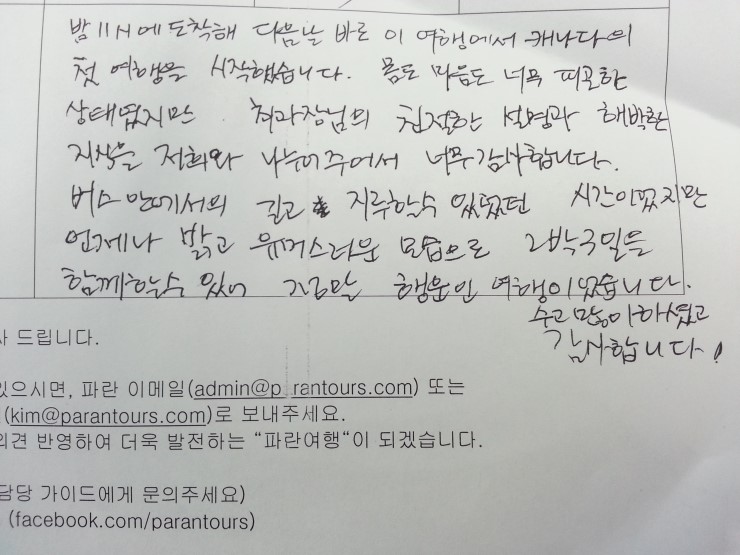 밤 11시에 도착해 다음날 바로 이 여행에서 캐나다의
첫 여행을 시작했습니다. 몸도 마음도 너무 피곤한
상태였지만 최과장님의 친절한 설명과 해박한
지식을 저희와 나누어주어서 너무 감사합니다.
버스 안에서의 길고 지루할수 있었던 시간이였지만
언제나 밝고 유머스러운 모습으로 2박3일을
함께할수 있어 정말 행운인 여행이었습니다.
수고 많이하셨고
감사합니다!
사 드립니다.
있으시면, 파란 이메일(admin@p rantours.com) 또는
(kim@parantours.com)로 보내주세요.
의견 반영하여 더욱 발전하는 “파란여행“이 되겠습니다.
담당 가이드에게 문의주세요)
(facebook.com/parantours)